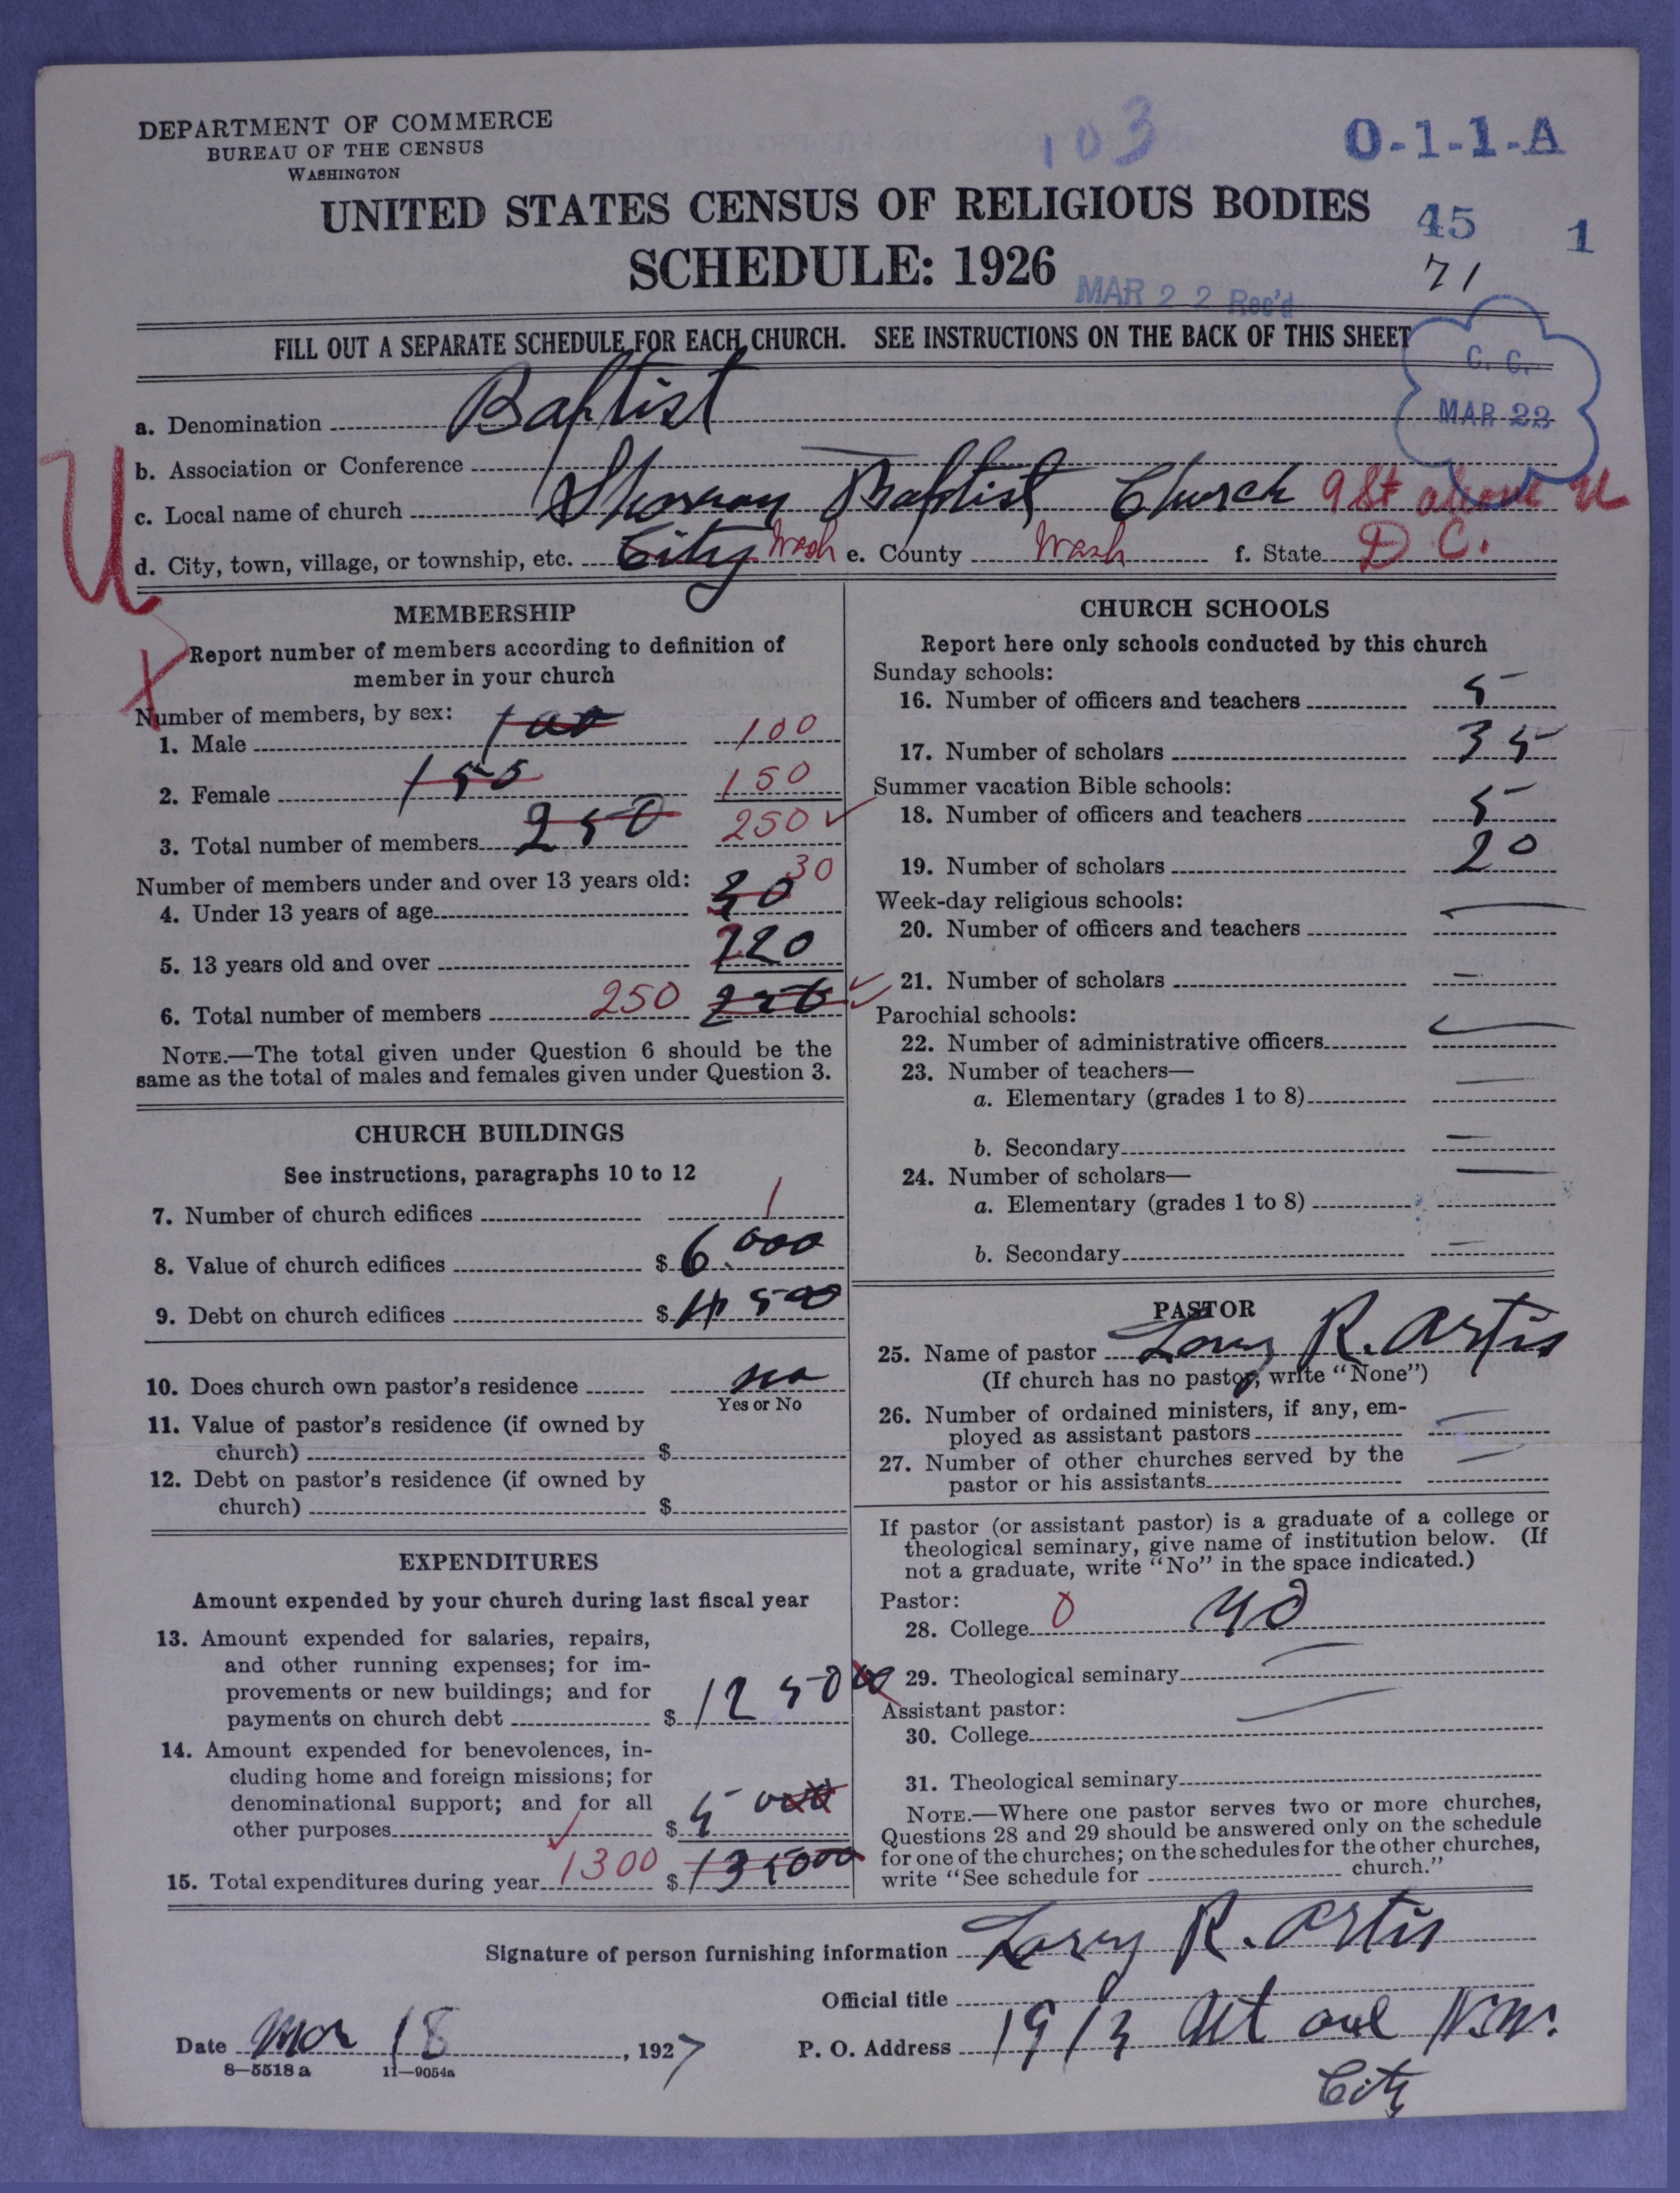 DEPARTMENT OF COMMERCE
BUREAU OF THE CENSUS
WASHINGTON
103
O-1-1-A
UNITED STATES CENSUS OF RELIGIOUS BODIES
45
1
SCHEDULE: 1926
71
MAR 22 Rec'd
FILL OUT A SEPARATE SCHEDULE FOR EACH CHURCH. SEE INSTRUCTIONS ON THE BACK OF THIS SHEET
C. C.
MAR 23
a. Denomination Baptist
b. Association or Conference
c. Local name of church Baptist Church 9 St above U
U
d. City, town, village, or township, etc. City Wash e. County Wash f. State D C.
MEMBERSHIP
Report number of members according to definition of
member in your church
X
Number of members, by sex:
1. Male 100 100
2. Female 150 150
3. Total number of members 250 250
Number of members under and over 13 years old:
4. Under 13 years of age 30 30
5. 13 years old and over 220
6. Total number of members 250 250
NOTE.—The total given under Question 6 should be the
same as the total of males and females given under Question 3.
CHURCH BUILDINGS
See instructions, paragraphs 10 to 12
7. Number of church edifices 1
8. Value of church edifices $ 6.000
9. Debt on church edifices $ 4500
10. Does church own pastor's residence no
Yes or No
11. Value of pastor's residence (if owned by
church) $
12. Debt on pastor's residence (if owned by
church) $
EXPENDITURES
Amount expended by your church during last fiscal year
13. Amount expended for salaries, repairs,
and other running expenses; for im-
provements or new buildings; and for
payments on church debt $ 1250 00
14. Amount expended for benevolences, in-
cluding home and foreign missions; for
denominational support; and for all
other purposes $ 50 00
15. Total expenditures during year 1300 $ 135000
CHURCH SCHOOLS
Report here only schools conducted by this church
Sunday schools:
16. Number of officers and teachers 5
17. Number of scholars 35
Summer vacation Bible schools:
18. Number of officers and teachers 5
19. Number of scholars 20
Week-day religious schools:
20. Number of officers and teachers —
21. Number of scholars —
Parochial schools:
22. Number of administrative officers —
23. Number of teachers—
a. Elementary (grades 1 to 8) —
b. Secondary —
24. Number of scholars—
a. Elementary (grades 1 to 8) —
b. Secondary —
PASTOR
25. Name of pastor R. Artis
(If church has no pastor, write "None")
26. Number of ordained ministers, if any, em-
ployed as assistant pastors —
27. Number of other churches served by the
pastor or his assistants —
If pastor (or assistant pastor) is a graduate of a college or
theological seminary, give name of institution below. (If
not a graduate, write "No" in the space indicated.)
Pastor:
28. College 0 no
29. Theological seminary —
Assistant pastor:
30. College —
31. Theological seminary
NOTE.—Where one pastor serves two or more churches,
Questions 28 and 29 should be answered only on the schedule
for one of the churches; on the schedules for the other churches,
write "See schedule for church."
Signature of person furnishing information R. Artis
Official title
Date Mar 18, 1927
P. O. Address 1913 N.W.
City
8—5518 a 11—9054a